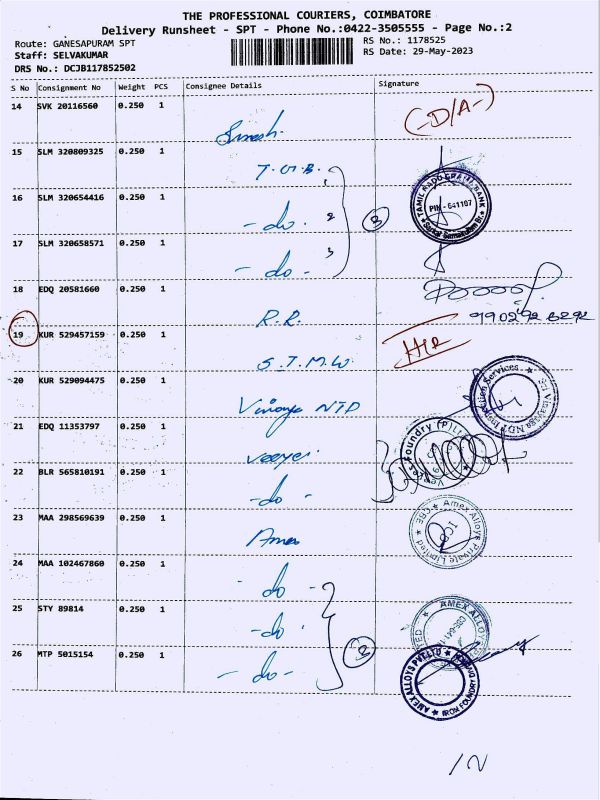 THE PROFESSIONAL COURIERS, COIMBATORE
Delivery Runsheet - SPT - Phone No.:0422-3505555 - Page No.:2
Route: GANESAPURAM SPT
RS No.: 1178525
Staff: SELVAKUMAR
RS Date: 29-May-2023
DRS No.: DCJB117852502
S No Consignment No Weight PCS Consignee Details Signature
14 SVK 20116560 0.250 1
(-D/A-)
15 SLM 320809325 0.250 1
T.G.B. 1
16 SLM 320654416 0.250 1
-do- 2 3
TAMIL NADU GRAMA BANK
PIN - 641107
17 SLM 320658571 0.250 1
-do- 3
18 EDQ 20581660 0.250 1
R.R.
19 KUR 529457159 0.250 1
S.T.M.W
20 KUR 529094475 0.250 1
Vinaya NTD
Sri Vinayaga NDT Inspection Services
21 EDQ 11353797 0.250 1
Foundry (P)
22 BLR 565810191 0.250 1
-do-
23 MAA 298569639 0.250 1
Amex
Amex Alloys Private Limited CBE
24 MAA 102467860 0.250 1
-do-
25 STY 89814 0.250 1
-do-
AMEX ALLOYS
26 MTP 5015154 0.250 1
-do- 3
AMEX ALLOYS PVT LTD
IRON FOUNDRY